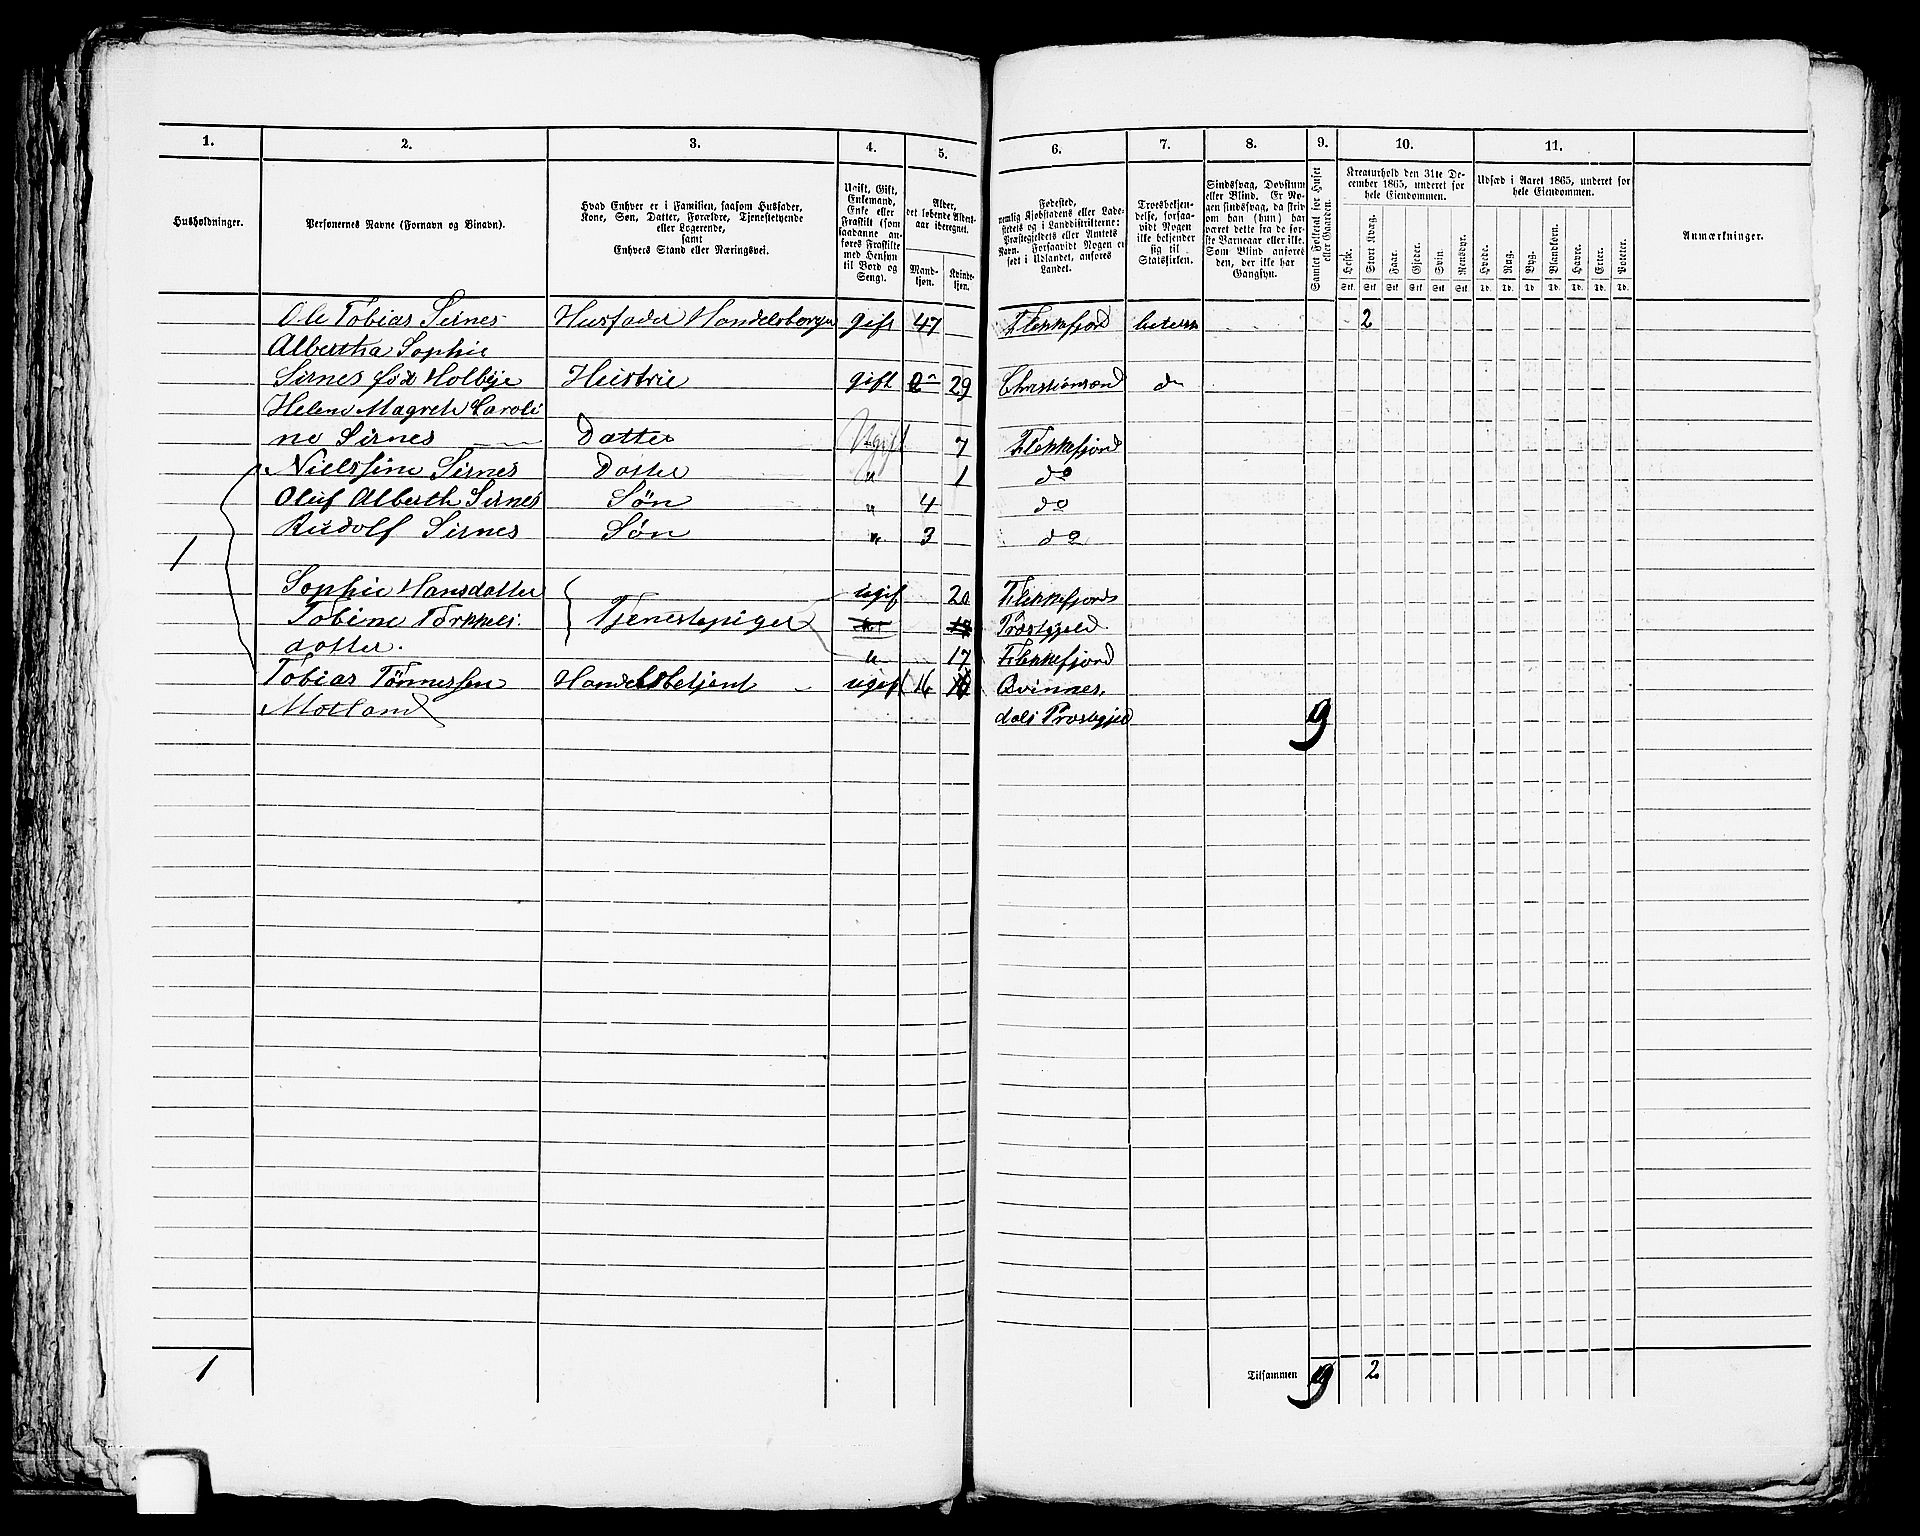 1. 2. 3. 4. 5. 6. 7. 8. 9. 10. 11.
Husholdninger.
Personernes Navne (Fornavn og Binavn).
Hvad Enhver er i Familien, saasom Husfader,
Kone, Søn, Datter, Forældre, Tjenestetyende
eller Logerende,
samt
Enhvers Stand eller Næringsvei.
Ugift, Gift,
Enkemand,
Enke eller
Fraskilt (som
saadanne an-
føres Fraskilte
med Hensyn
til Bord og
Seng).
Alder,
det løbende Alders-
aar iberegnet.
Mand-
kjøn.
Kvinde-
kjøn.
Fødested,
nemlig Kjøbstadens eller Lade-
stedets og i Landdistrikterne:
Præstegjeldets eller Amtets
Navn. Forsaavidt Nogen er
født i Udlandet, anføres
Landet.
Troesbekjen-
delse, forsaa-
vidt Nogen
ikke bekjender
sig til
Statskirken.
Sindssvag, Døvstum
eller Blind. Er No-
gen sindssvag, da skri-
es om han (hun) har
været dette fra de før-
ste Barneaar eller ikke.
Som Blind anføres
den, der ikke har
Gangsyn.
Samlet Folketal for Huset
eller Gaarden.
Kreaturhold den 31te De-
cember 1865, underet for
hele Eiendommen.
Hest. Stort Kvæg. Faar. Gjeder. Svin. Rensdyr.
Stk. Stk. Stk. Stk. Stk. Stk.
Udsæd i Aaret 1865, underet for
hele Eiendommen.
Hvede. Rug. Byg. Blankorn. Havre. Erter. Poteter.
Td. Td. Td. Td. Td. Td. Td.
Anmærkninger.
Ole Tobias Sirnes Husfader Handelsborger gift 47 Flekkefjord 2
Albertha Sophie
Sirnes fød Holbye Hustrue gift 29 Christiansand do
Helene Magrete Caroli
ne Sirnes Datter Ugift 7 Flekkefjord
Nielssine Sirnes Datter " 1 do
Oluf Alberth Sirnes Søn " 4 do
Rudolf Sirnes Søn " 3 do
1
Sophie Hansdatter Tjenestepiger ugift 20 Flekkefjords
Tobine Torkkels Præstgjeld.
datter. " 17 Flekkefjord
Tobias Tønnessen Handelsbetjent ugift 16 Qvinnes
Motland dals Præstegjeld 9
1 Tilsammen 9 2